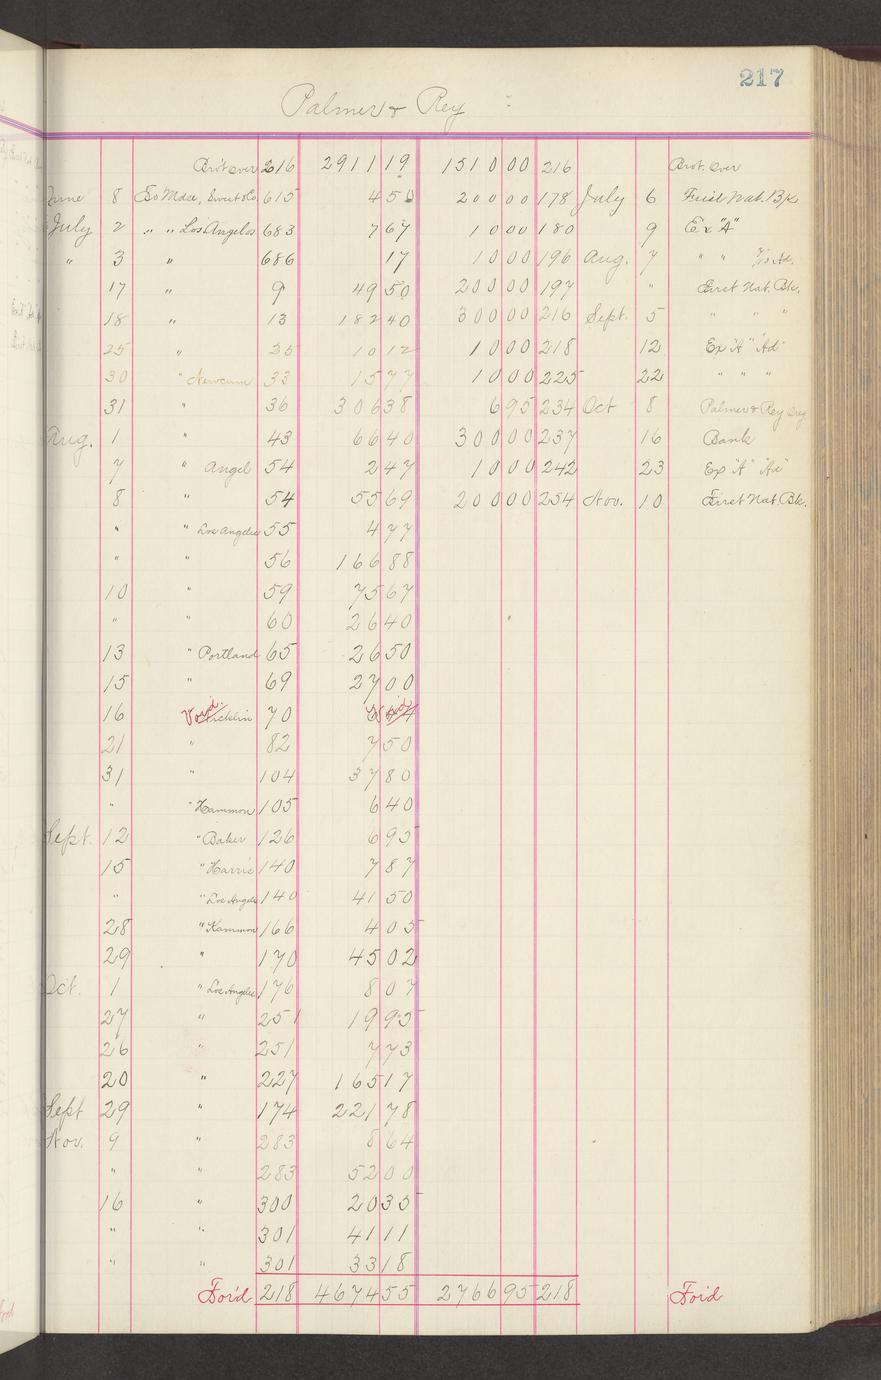 217
Palmer & Rey
Bro't over 216 2911 19 1510 00 216 Brot. over
June 8 To Mdse, Sweet & Co 615 4 50 200 00 178 July 6 First Nat. Bk
July 2 " " Los Angelos 683 7 67 10 00 180 9 Ex "A"
" 3 " 686 17 10 00 196 Aug. 7 " " Ad.
17 " 9 49 50 200 00 197 " First Nat. Bk.
18 " 13 182 40 300 00 216 Sept. 5 " " "
25 " 25 10 12 10 00 218 12 Ex "A" "Ad"
30 " Newcum 33 15 77 10 00 225 22 " " "
31 " 36 306 38 6 95 234 Oct 8 Palmer & Rey
Aug. 1 " 43 66 40 300 00 237 16 Bank
7 " Angel 54 2 47 10 00 242 23 Ex "A" "Ad"
8 " 54 55 69 200 00 254 Nov. 10 First Nat. Bk.
" " Los Angelos 55 4 77
" " 56 166 88
10 " 59 75 67
" " 60 26 40
13 " Portland 65 26 50
15 " 69 27 00
16 Void. 70 Void
21 " 82 7 50
31 " 104 37 80
" " Hammon 105 6 40
Sept. 12 " Baker 126 6 95
15 " Harris 140 7 87
" " Los Angelos 140 41 50
28 " Hammon 166 4 05
29 " 170 45 02
Oct. 1 " Los Angelos 176 8 07
27 " 251 19 95
26 " 251 7 73
20 " 227 165 17
Sept 29 " 174 221 78
Nov. 9 " 283 8 64
" " 283 52 00
16 " 300 20 35
" " 301 41 11
" " 301 33 18
For'd 218 4674 55 2766 95 218 For'd